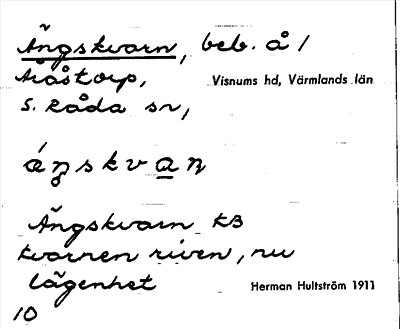 Ängskvarn, beb. å /
Åråstorp, Visnums hd, Värmlands län
S. Råda sn,
áŋskvan
Ängskvarn KB
kvarnen riven, nu
lägenhet Herman Hultström 1911
10